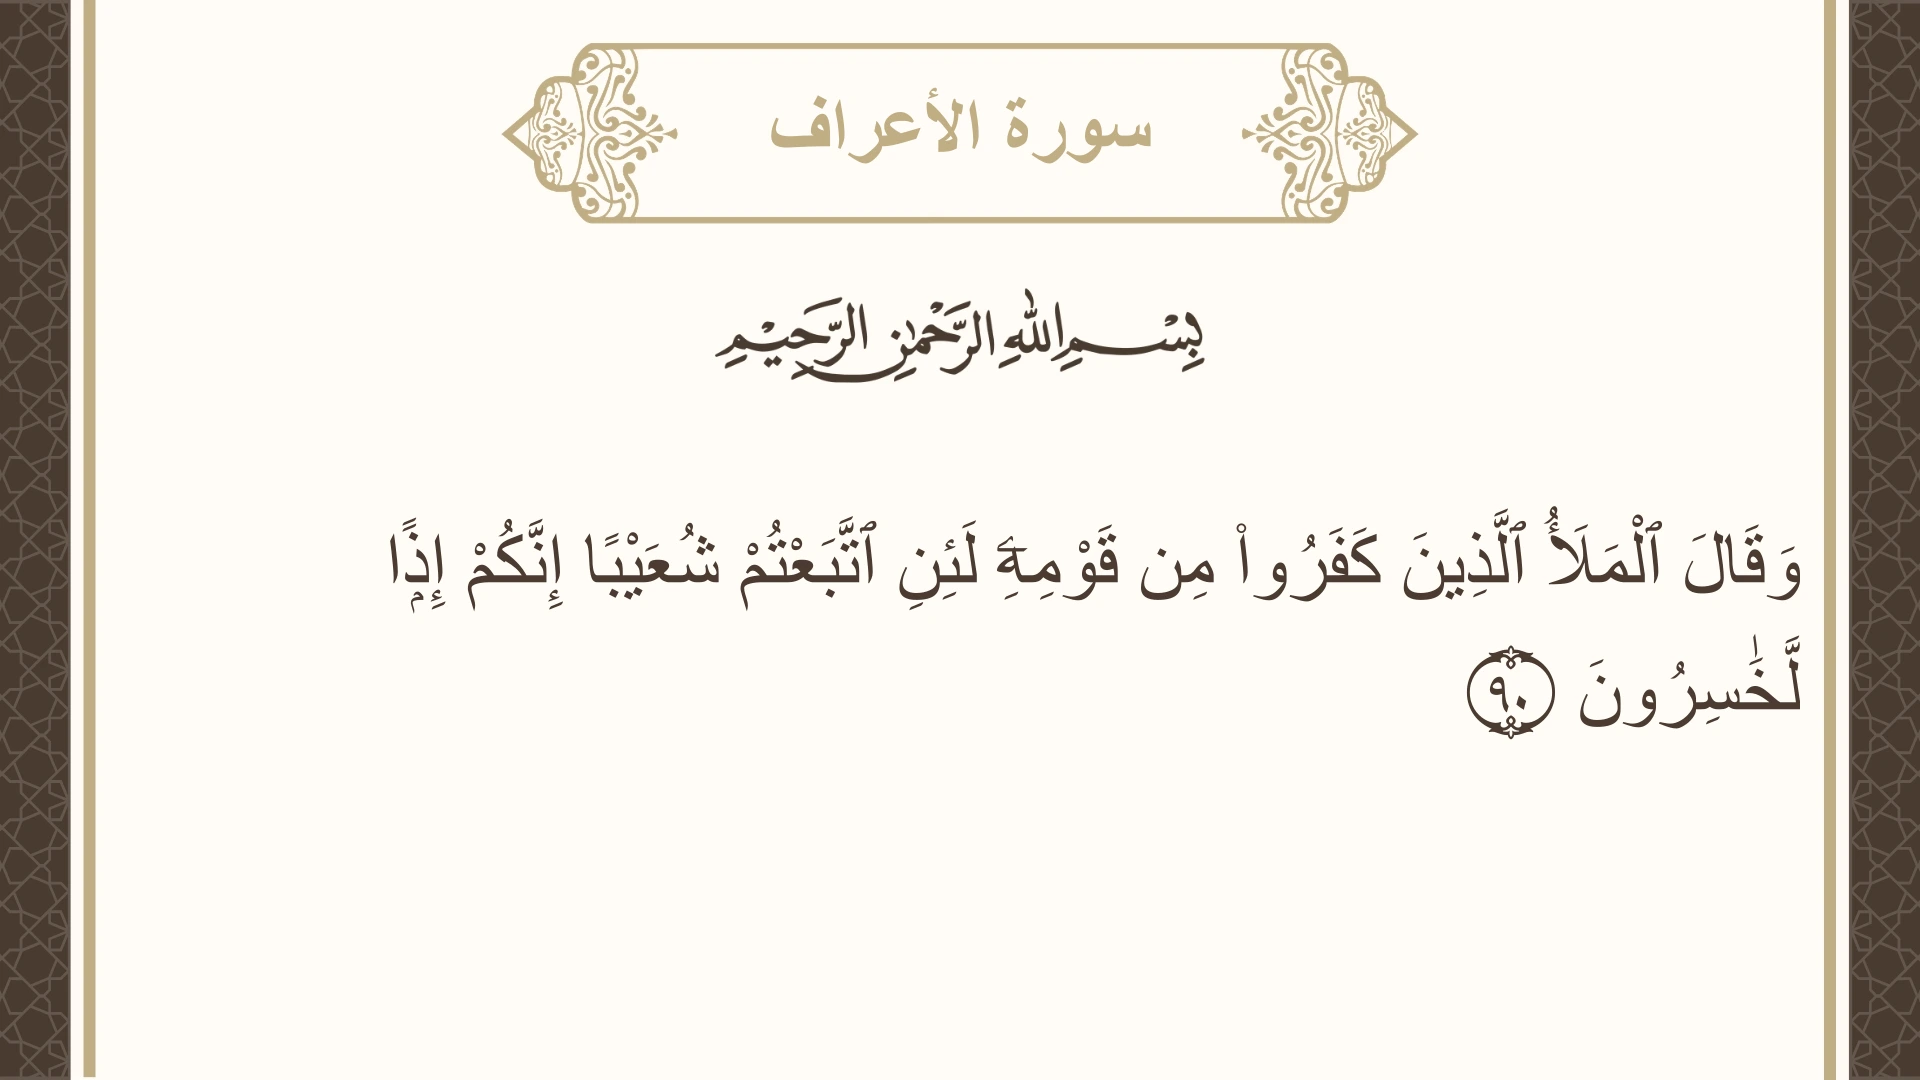 سورة الأعراف
بِسْمِ اللهِ الرَّحْمٰنِ الرَّحِيْمِ
وَقَالَ ٱلْمَلَأُ ٱلَّذِينَ كَفَرُوا۟ مِن قَوْمِهِۦ لَئِنِ ٱتَّبَعْتُمْ شُعَيْبًا إِنَّكُمْ إِذًۭا
لَّخَـٰسِرُونَ ٩٠